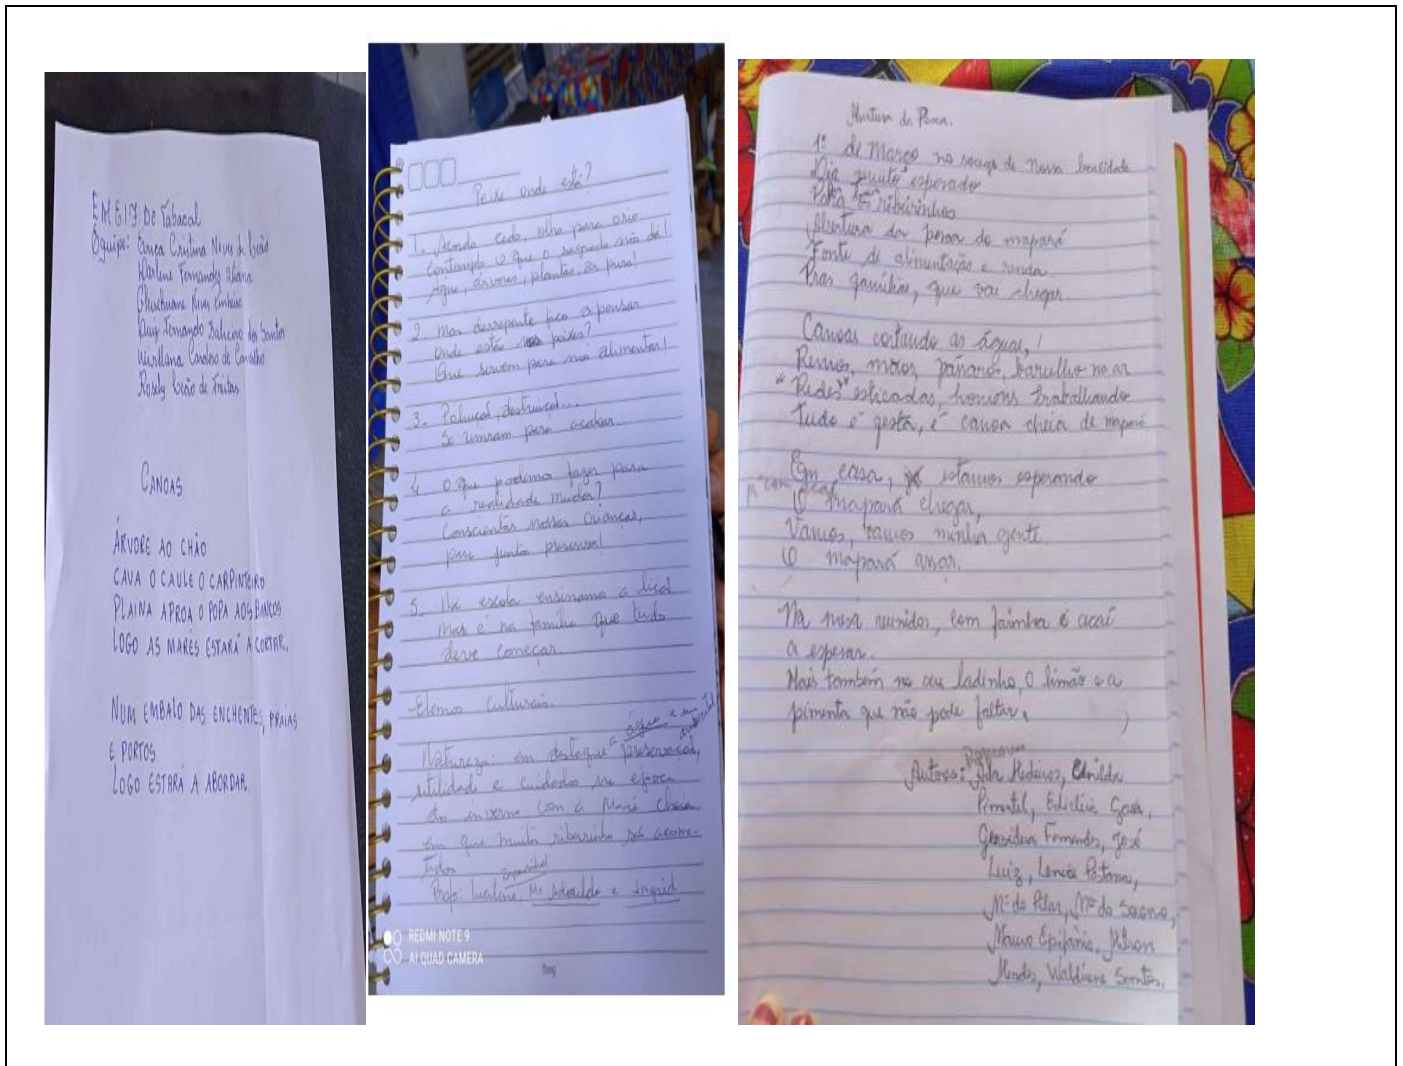 EMEIF De Tabacal
Equipe: Cristina Neves de Leão
Fernandes
Pinheiro
Luiz Fernando dos Santos
Cardoso de Carvalho
Rosely Leão de Freitas
CANOAS
ÁRVORE AO CHÃO
CAVA O CAULE O CARPINTEIRO
PLAINA APROA O POPA AOS BANCOS
LOGO AS MARÉS ESTARÁ A CORTAR.
NUM EMBALO DAS ENCHENTES, PRAIAS
E PORTOS
LOGO ESTARÁ A ABORDAR.
Peixe onde está?
1. Acordo cedo, olho para o rio
contemplo o que o sagrado nós dá!
Água, árvores, plantas, ar puro!
2. Mas derrepente fico a pensar
onde estão os peixes?
Que servem para nós alimentar!
3. Poluição, destruição...
Se uniram para acabar.
4. O que podemos fazer para
a realidade mudar?
nossas crianças,
para juntos preservar!
5. Na escola ensinamos a lição
Mas é na família que tudo
deve começar.
Elemos Culturais.
Natureza: em destaque a água e
preservação,
utilidade e cuidados na época
do inverno com a maré cheia.
em que muitos ribeirinho são acome-
tidos
Profs: e Ingrid
REDMI NOTE 9
AI QUAD CAMERA
Abertura da Pesca.
1º de Março no sossego de nossa localidade
Dia muito esperado
Para ribeirinhos
Abertura da pesca do mapará
Fonte de alimentação e renda
Pras famílias, que vai chegar.
Canoas cortando as águas,!
Remos, mãos, barulho no ar
"Redes" esticadas, homens trabalhando
Tudo é festa, é canoa cheia de mapará
Em casa, estamos esperando
O mapará chegar,
Vamos, vamos minha gente.
O mapará assar.
Na mesa reunidos, com farinha é açaí
a esperar.
Mais também no seu ladinho, o limão e a
pimenta que não pode faltar.
Professores
Autores: Medeiros,
Pimentel,
Fernandes, José
Luiz,
Mª do Pilar, Mª do Socorro,
Mauro Epifânio,
Mendes, Santos.